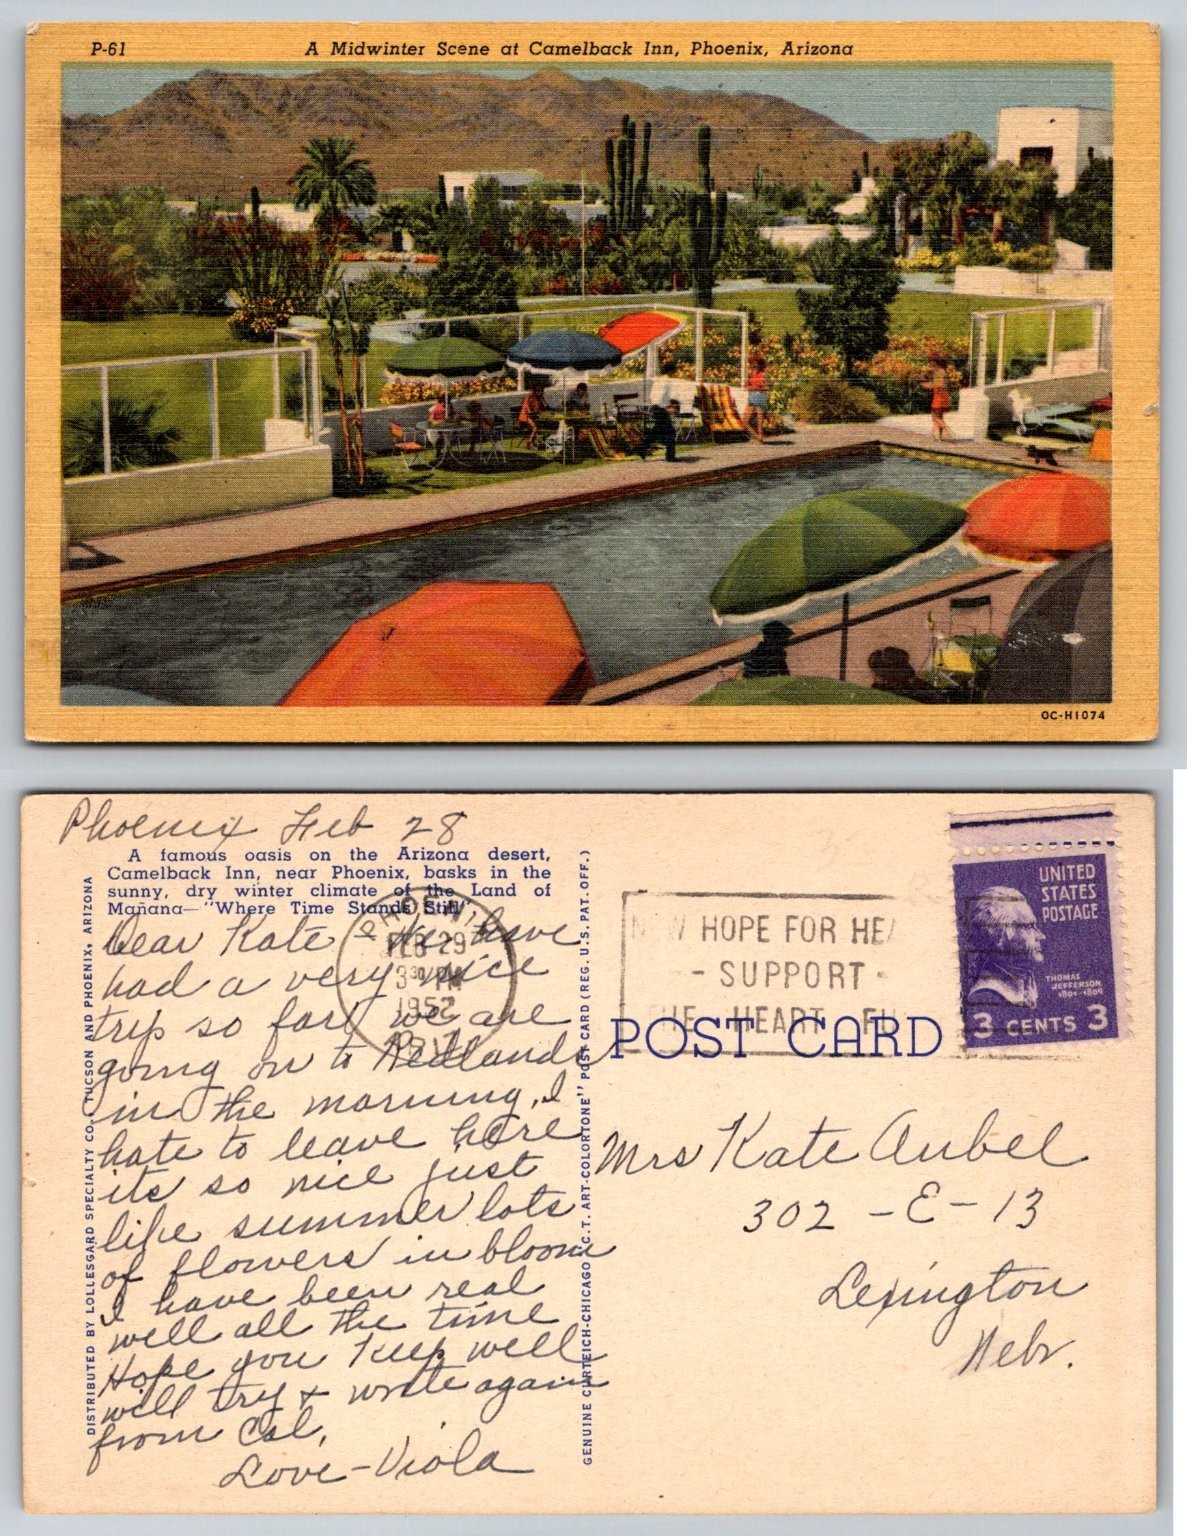 P-61
A Midwinter Scene at Camelback Inn, Phoenix, Arizona
OC-H1074
Phoenix Feb 28
A famous oasis on the Arizona desert,
Camelback Inn, near Phoenix, basks in the
sunny, dry winter climate of the Land of
Mañana—"Where Time Stands Still"
Dear Kate - We have
had a very nice
trip so far we are
going on to Redlands
in the morning, I
hate to leave here
its so nice just
like summer lots
of flowers in bloom
I have been real
well all the time
Hope you keep well
will try + write again
from Cal,
Love - Viola
DISTRIBUTED BY LOLLESGARD SPECIALTY CO., TUCSON AND PHOENIX, ARIZONA
GENUINE CURTEICH-CHICAGO "C. T. ART-COLORTONE" POST CARD (REG. U.S. PAT. OFF.)
FEB 29
3 30 PM
1952
HOPE FOR HEA
- SUPPORT -
HEART
POST CARD
UNITED
STATES
POSTAGE
THOMAS
JEFFERSON
1801-1809
3 CENTS 3
Mrs Kate Aubel
302 - E - 13
Lexington
Nebr.